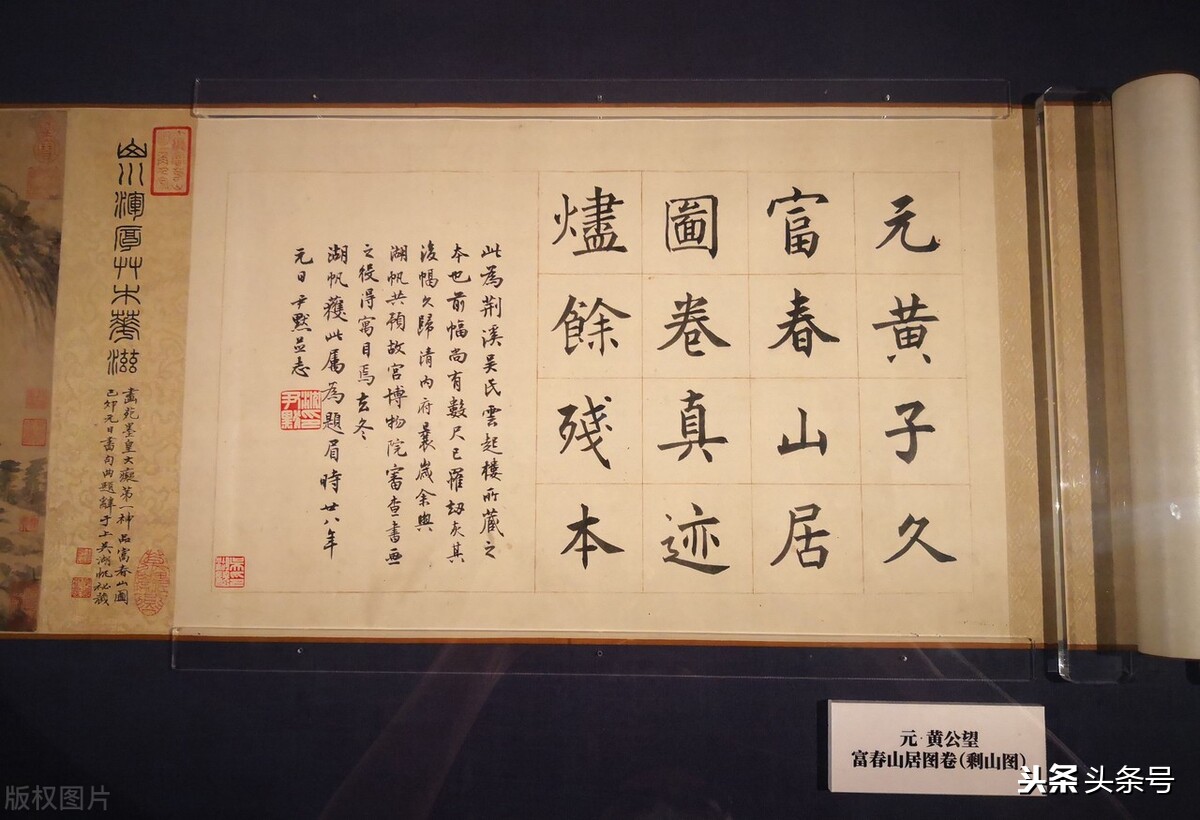 元黄子久
富春山居
圖卷真迹
燼餘殘本
此為荆溪吴氏雲起樓所藏之
本也前幅尚有數尺已罹劫灰其
後幅久歸清内府曩歲余與
湖帆共預故宮博物院審查書画
之役得寓目焉玄冬
湖帆獲此属為題眉時廿八年
元日尹默並志
山川渾厚艸木華滋
畫苑墨皇大癡第一神品富春山圖
己卯元日書句曲題辭于上吴湖帆秘藏
元·黄公望
富春山居图卷(剩山图)
头条 头条号
版权图片